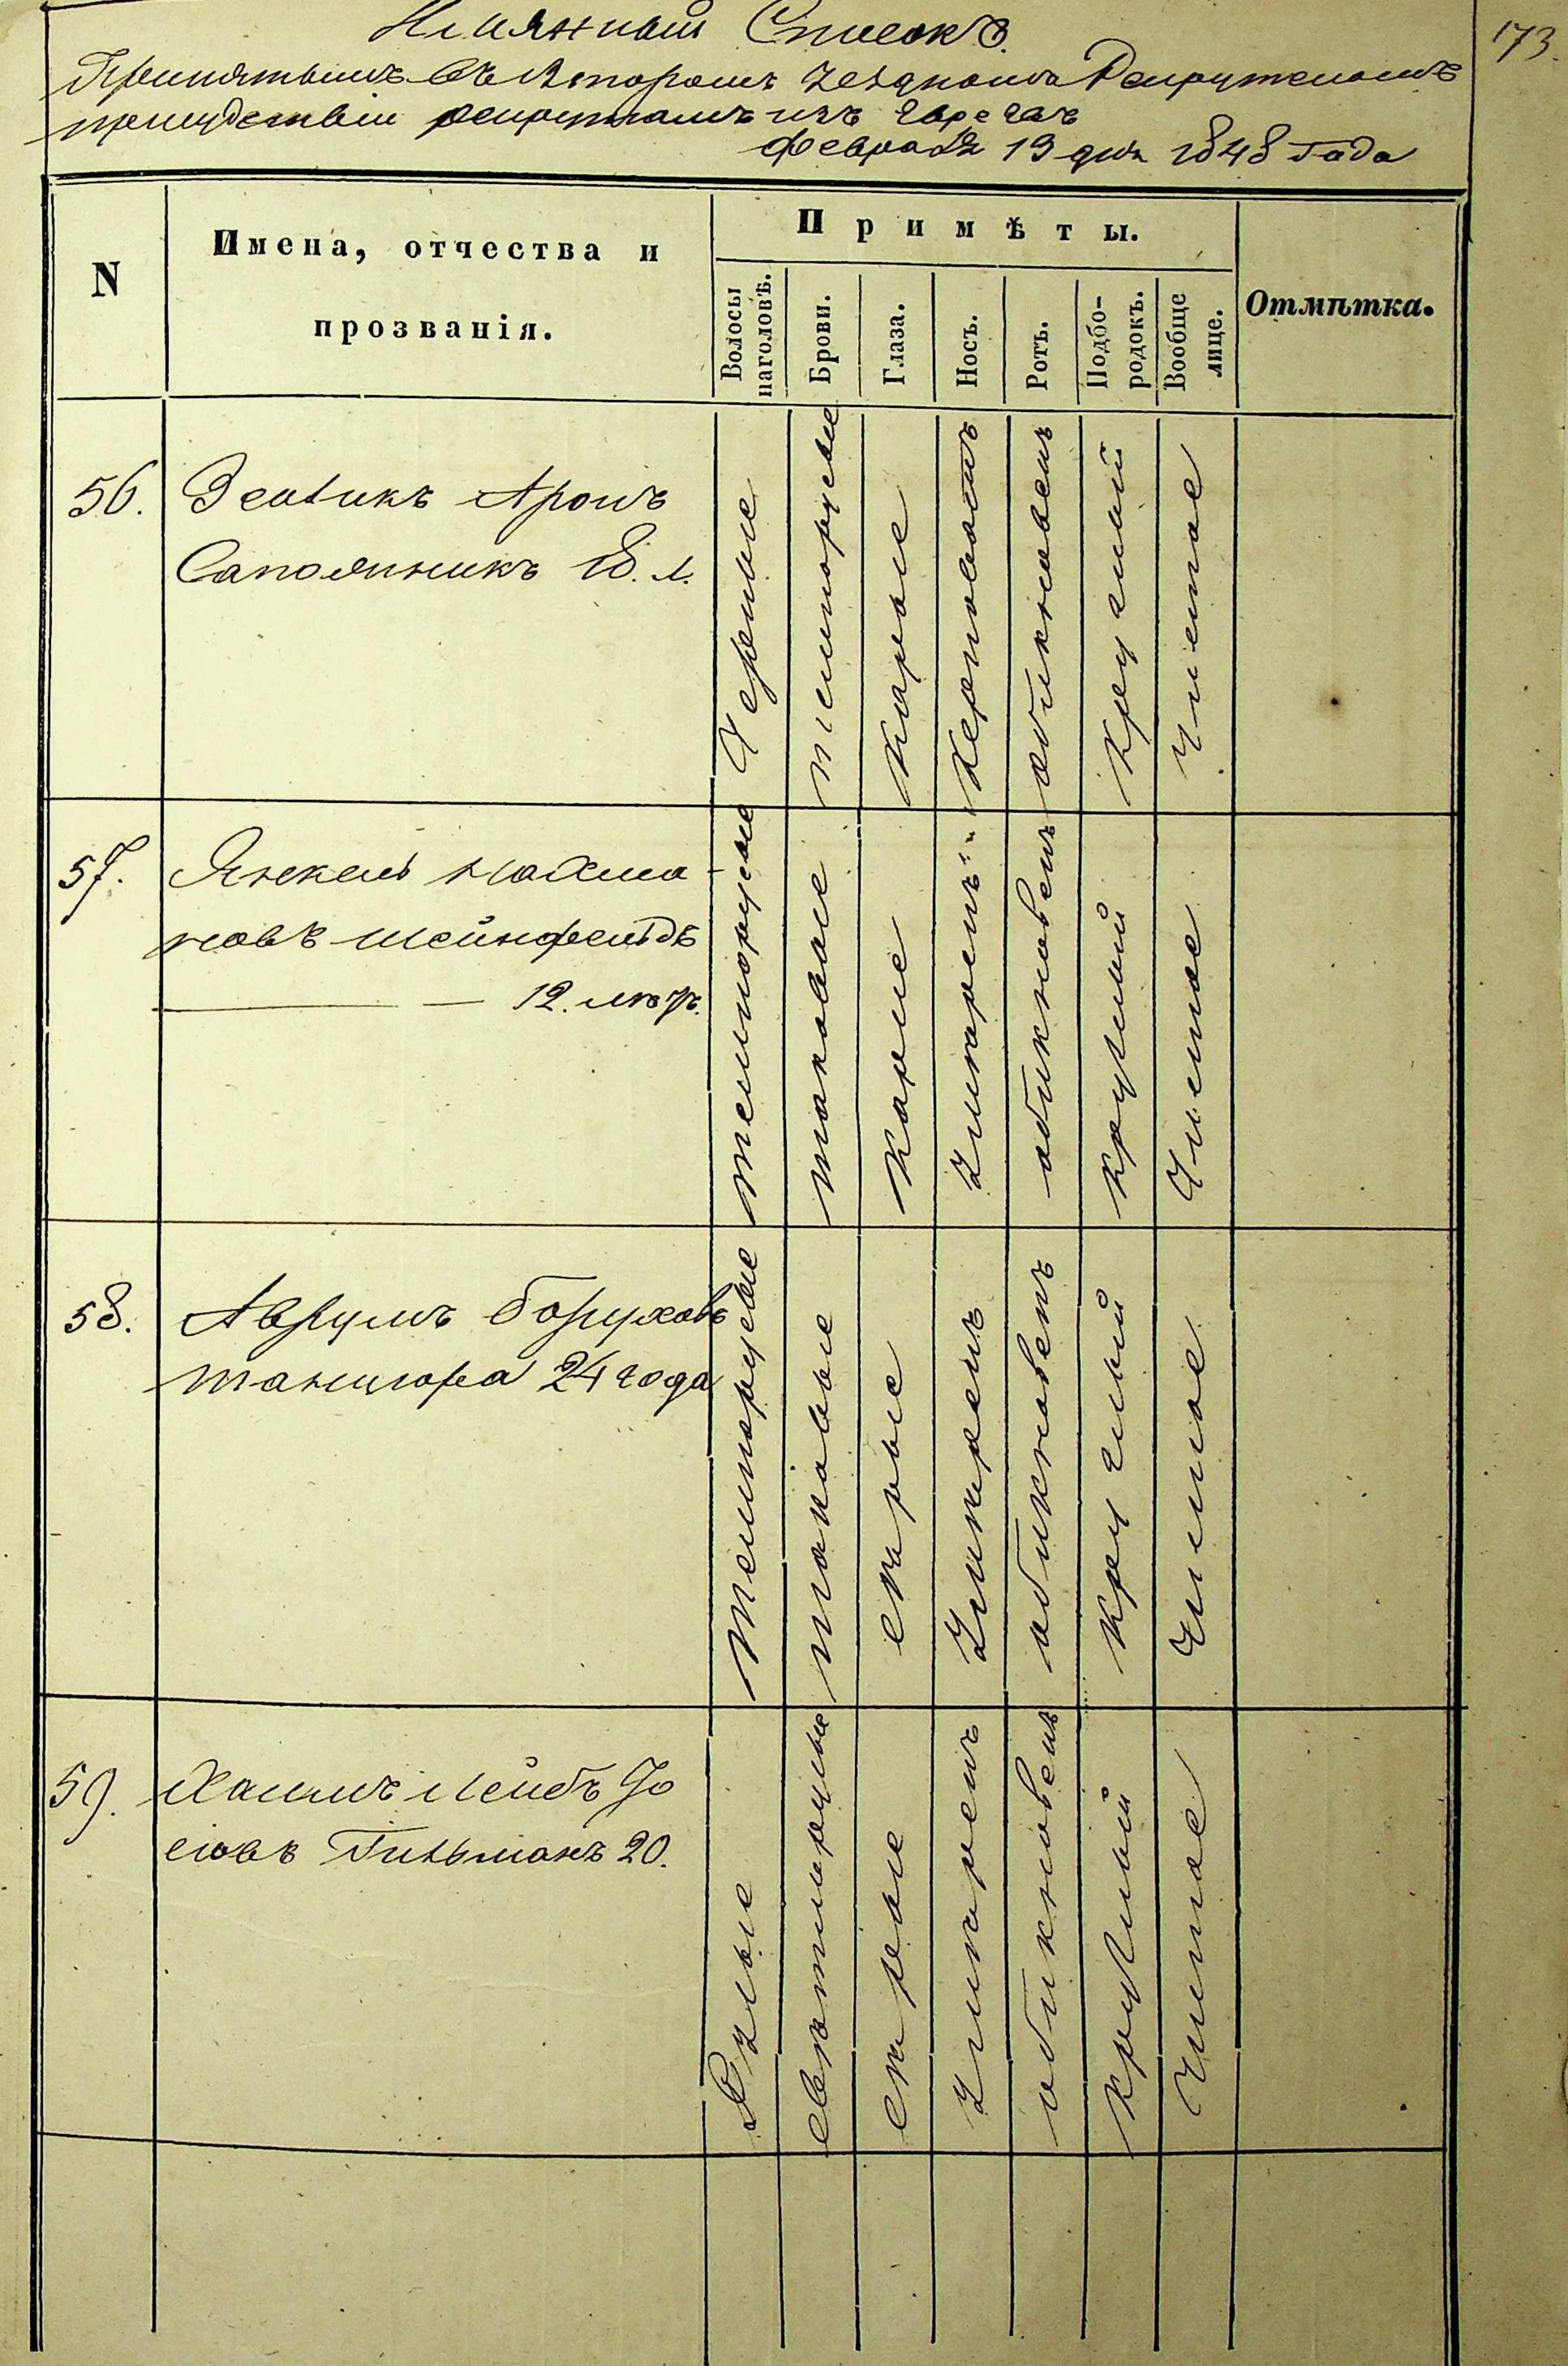 Имянный Списокъ.
173.
Принятымъ въ Ягоромъ уездномъ Рекрутскомъ
присудствіи рекрутамъ изъ Евреевъ
февраля 19 дня 1848 Года
N
Имена, отчества и
прозванія.
Примѣты.
Волосы
наголовѣ.
Брови.
Глаза.
Носъ.
Ротъ.
Подбо-
родокъ.
Вообще
лице.
Отмѣтка.
56.
Зельикъ Аронъ
Сапожникъ 18. л.
Черные
темнорусые
Карые
обикновенъ
круглый
Чистое
57.
Янкель Нахма-
новъ Шейнфельдъ
12. лѣтъ.
темнорусые
таковые
Карые
умѣренъ
обикновенъ
круглый
Чистое
58.
Аврумъ Боруховъ
Танцюра 24 года
Темнорусые
таковые
сѣрые
Умѣренъ
обикновенъ
круглый
Чистое
59.
Хаимъ Лейбъ Іо
сіовъ Гильманъ 20.
свѣтлорусые
сѣрые
Умѣренъ
обикновенъ
круглый
Чистое